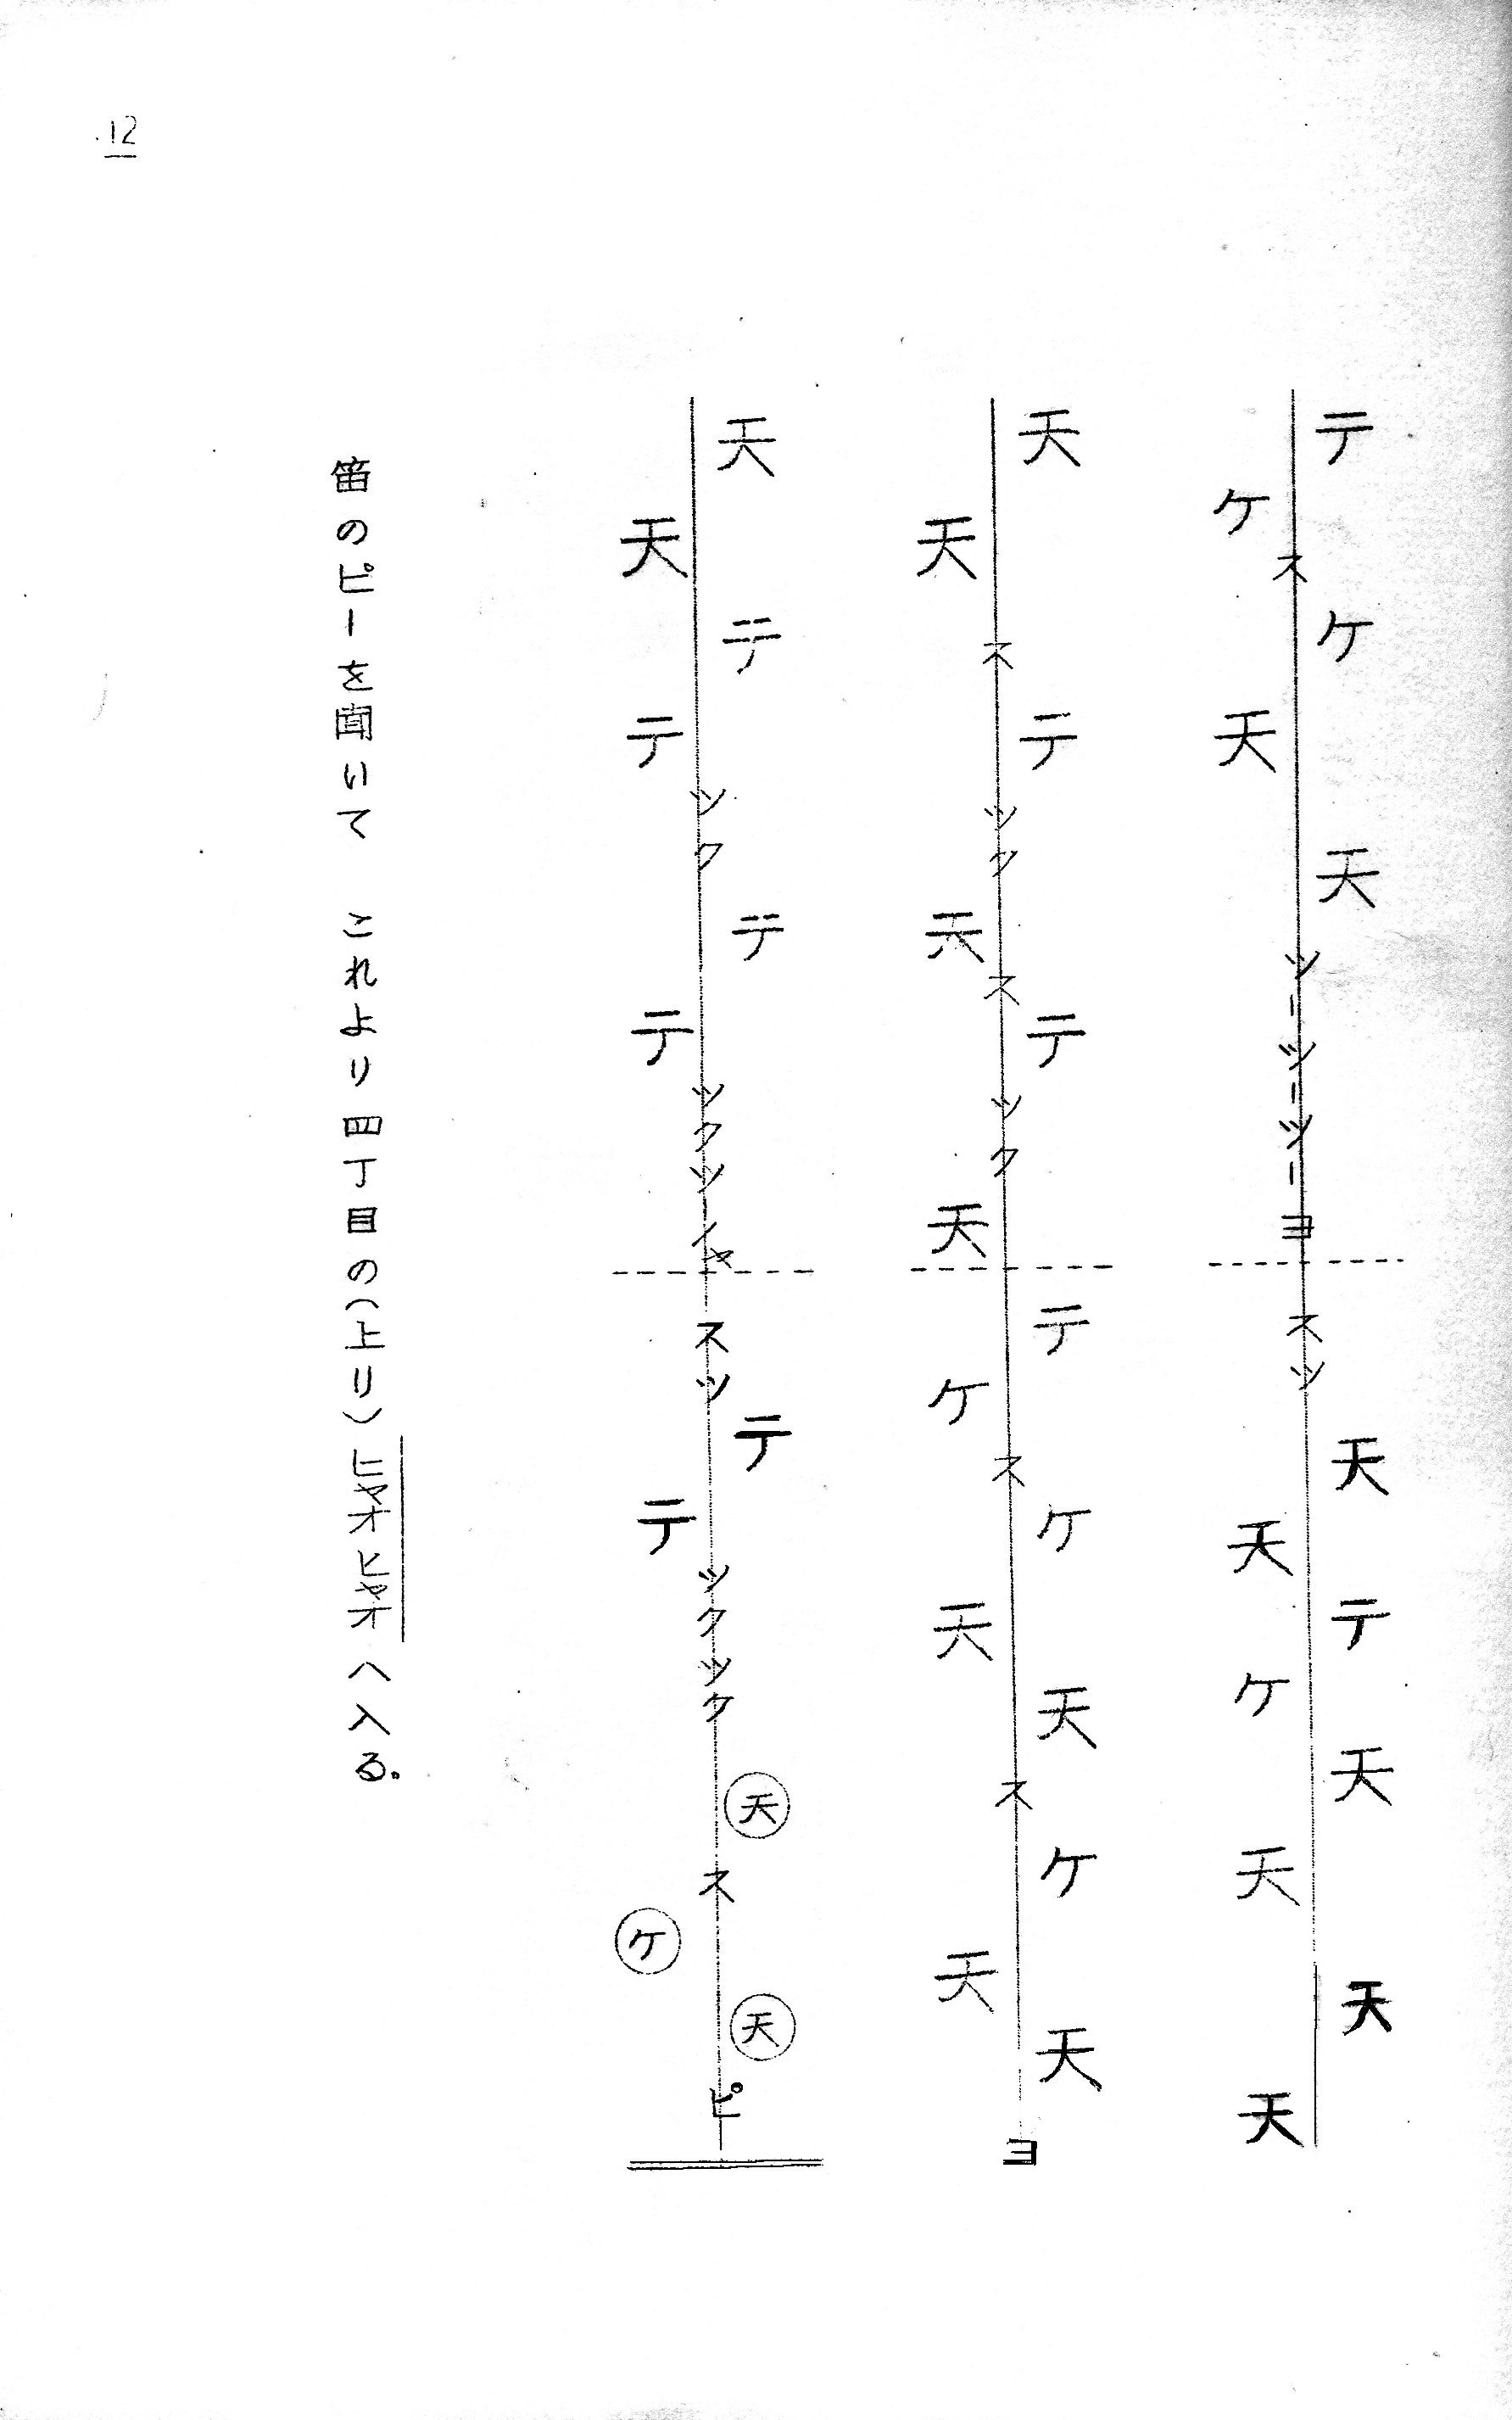 12
テケスケ天天ツーツーツーヨスツ天天テケ天天天天
天天ステツク天ステツク天テケスケ天天スケ天天ヨ
天天テテツクテテツクツーイヤスツテテツクツク天スケ天ピ
笛のピーを聞いて これより四丁目の(上り)ヒャオヒャオへ入る。